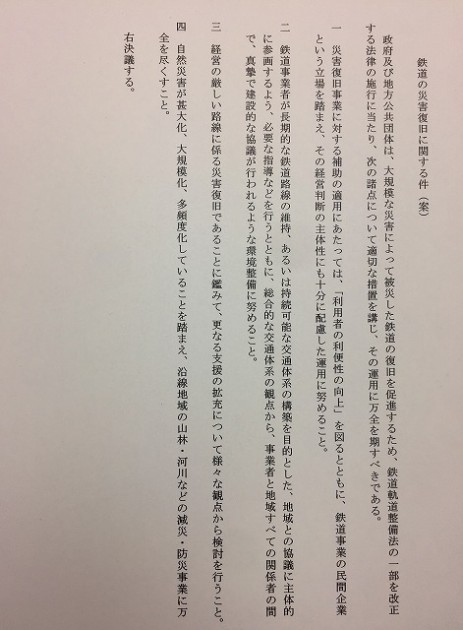 鉄道の災害復旧に関する件（案）
政府及び地方公共団体は、大規模な災害によって被災した鉄道の復旧を促進するため、鉄道軌道整備法の一部を改正
する法律の施行に当たり、次の諸点について適切な措置を講じ、その運用に万全を期すべきである。
一　災害復旧事業に対する補助の適用にあたっては、「利用者の利便性の向上」を図るとともに、鉄道事業の民間企業
という立場を踏まえ、その経営判断の主体性にも十分に配慮した運用に努めること。
二　鉄道事業者が長期的な鉄道路線の維持、あるいは持続可能な交通体系の構築を目的とした、地域との協議に主体的
に参画するよう、必要な指導などを行うとともに、総合的な交通体系の観点から、事業者と地域すべての関係者の間
で、真摯で建設的な協議が行われるような環境整備に努めること。
三　経営の厳しい路線に係る災害復旧であることに鑑みて、更なる支援の拡充について様々な観点から検討を行うこと。
四　自然災害が甚大化、大規模化、多頻度化していることを踏まえ、沿線地域の山林・河川などの減災・防災事業に万
全を尽くすこと。
右決議する。